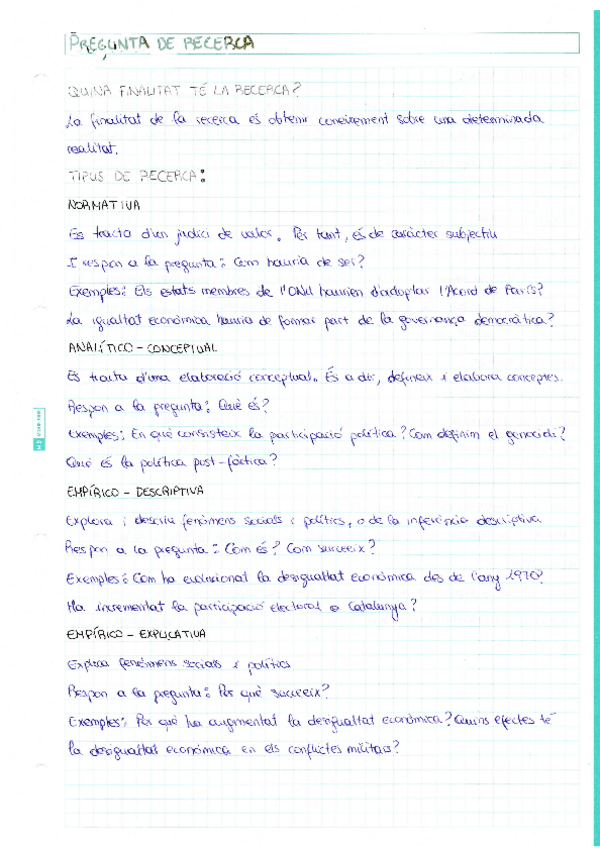 PREGUNTA DE RECERCA
QUINA FINALITAT TÉ LA RECERCA?
La finalitat de la recerca és obtenir coneixement sobre una determinada
realitat.
TIPUS DE RECERCA:
NORMATIVA
Es tracta d'un judici de valor. Per tant, és de caràcter subjectiu
I respon a la pregunta: Com hauria de ser?
Exemples: Els estats membres de l'ONU haurien d'adoptar l'Acord de París?
La igualtat econòmica hauria de formar part de la governança democràtica?
ANALÍTICO - CONCEPTUAL
Es tracta d'una elaboració conceptual. És a dir, defineix i elabora conceptes.
Respon a la pregunta: Què és?
Exemples: En què consisteix la participació política? Com definim el genocidi?
Què és la política post-fàctica?
EMPÍRICO - DESCRIPTIVA
Explora i descriu fenòmens socials i polítics, o de la inferència descriptiva
Respon a la pregunta: Com és? Com succeeix?
Exemples: Com ha evolucionat la desigualtat econòmica des de l'any 1970?
Ha incrementat la participació electoral a Catalunya?
EMPÍRICO - EXPLICATIVA
Explica fenòmens socials i polítics
Respon a la pregunta: Per què succeeix?
Exemples: Per què ha augmentat la desigualtat econòmica? Quins efectes té
la desigualtat econòmica en els conflictes militars?